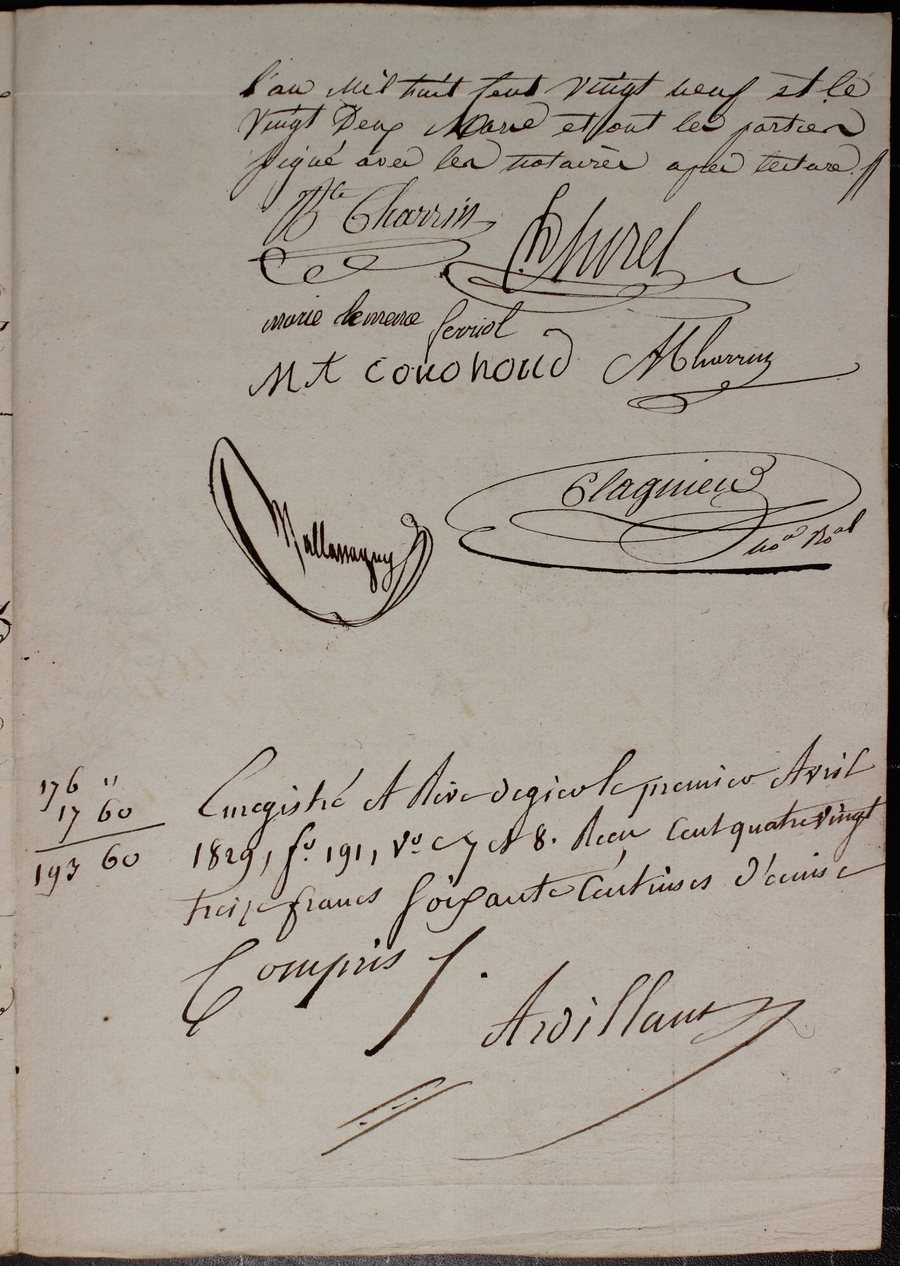 l'an mil huit cent vingt neuf et le
vingt Deux Mars et ont les parties
signé avec les notaires après lecture. //
Bte Charrin
Thurel
marie
ferriol
M A couchoud
A Charrin
Mallassagny
Plagnieu
no.re Roal
176 "
17 60
193 60
Enregistré A Rive degier le premier Avril
1829, fo. 191, vo. c 7 et 8. Reçu Cent quatre vingt
treize francs soixante Centimes décime
Compris /.
Ardillaut